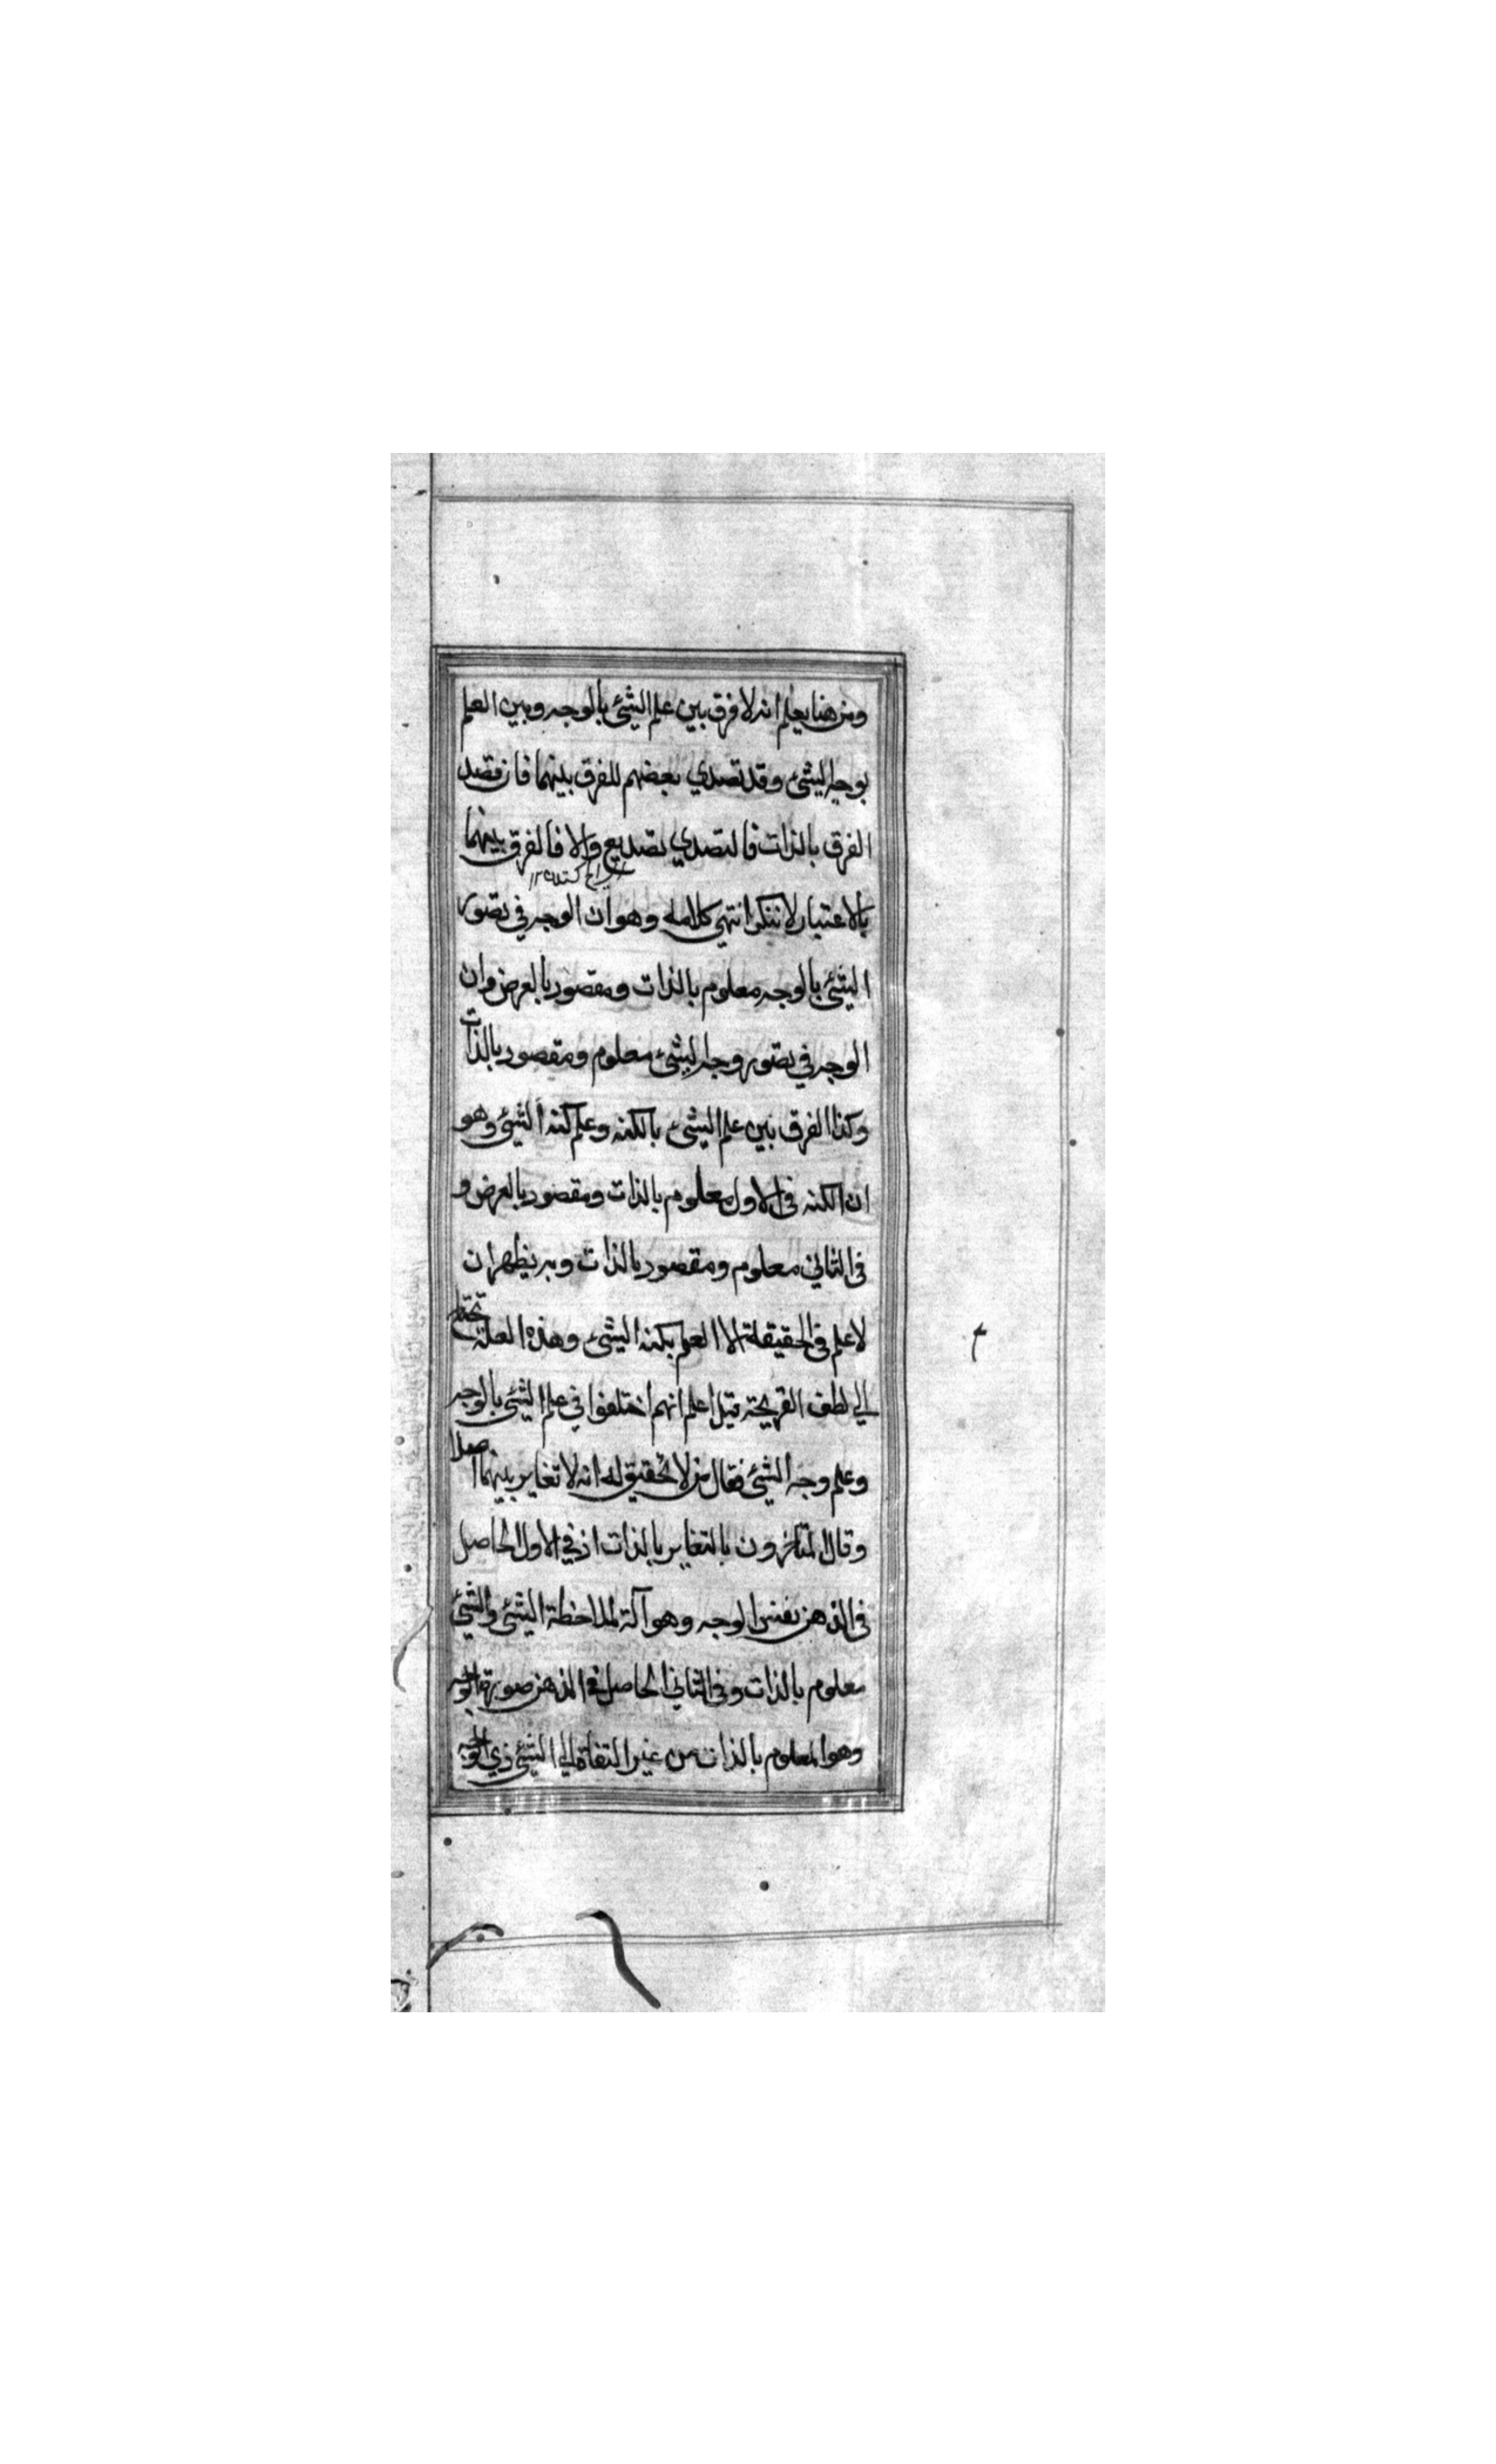 ومن هنا يعلم انه لا فرق بين علم الشئ بالوجه وبين العلم
بوجه الشئ وقد تصدي بعضهم للفرق بينهما فان قصد
الفرق بالذات فالتصدي تصديع والا فالفرق بينهما
بالاعتبار لا ننكر انتهي كلامه وهو ان الوجه في تصور
الشئ بالوجه معلوم بالذات ومقصود بالعرض وان
الوجه في تصور وجه الشئ معلوم ومقصود بالذات
وكذا الفرق بين علم الشئ بالكنه وعلم كنه الشئ وهو
ان الكنه في الاول معلوم بالذات ومقصود بالعرض و
في الثاني معلوم ومقصود بالذات وبه يظهر ان
لا علم في الحقيقة الا العلم بكنه الشئ وهذه العلة تحتاج
الي لطف القريحة قيل اعلم انهم اختلفوا في علم الشئ بالوجه
وعلم وجه الشئ فقال من لا تحقيق له انه لا تغاير بينهما اصلا
وقال المتاخرون بالتغاير بالذات اذ في الاول الحاصل
في الذهن نفس الوجه وهو آلة لملاحظة الشئ والشئ
معلوم بالذات وفي الثاني الحاصل في الذهن صورة الوجه
وهو المعلوم بالذات من غير التفات الي الشئ ذي الوجه